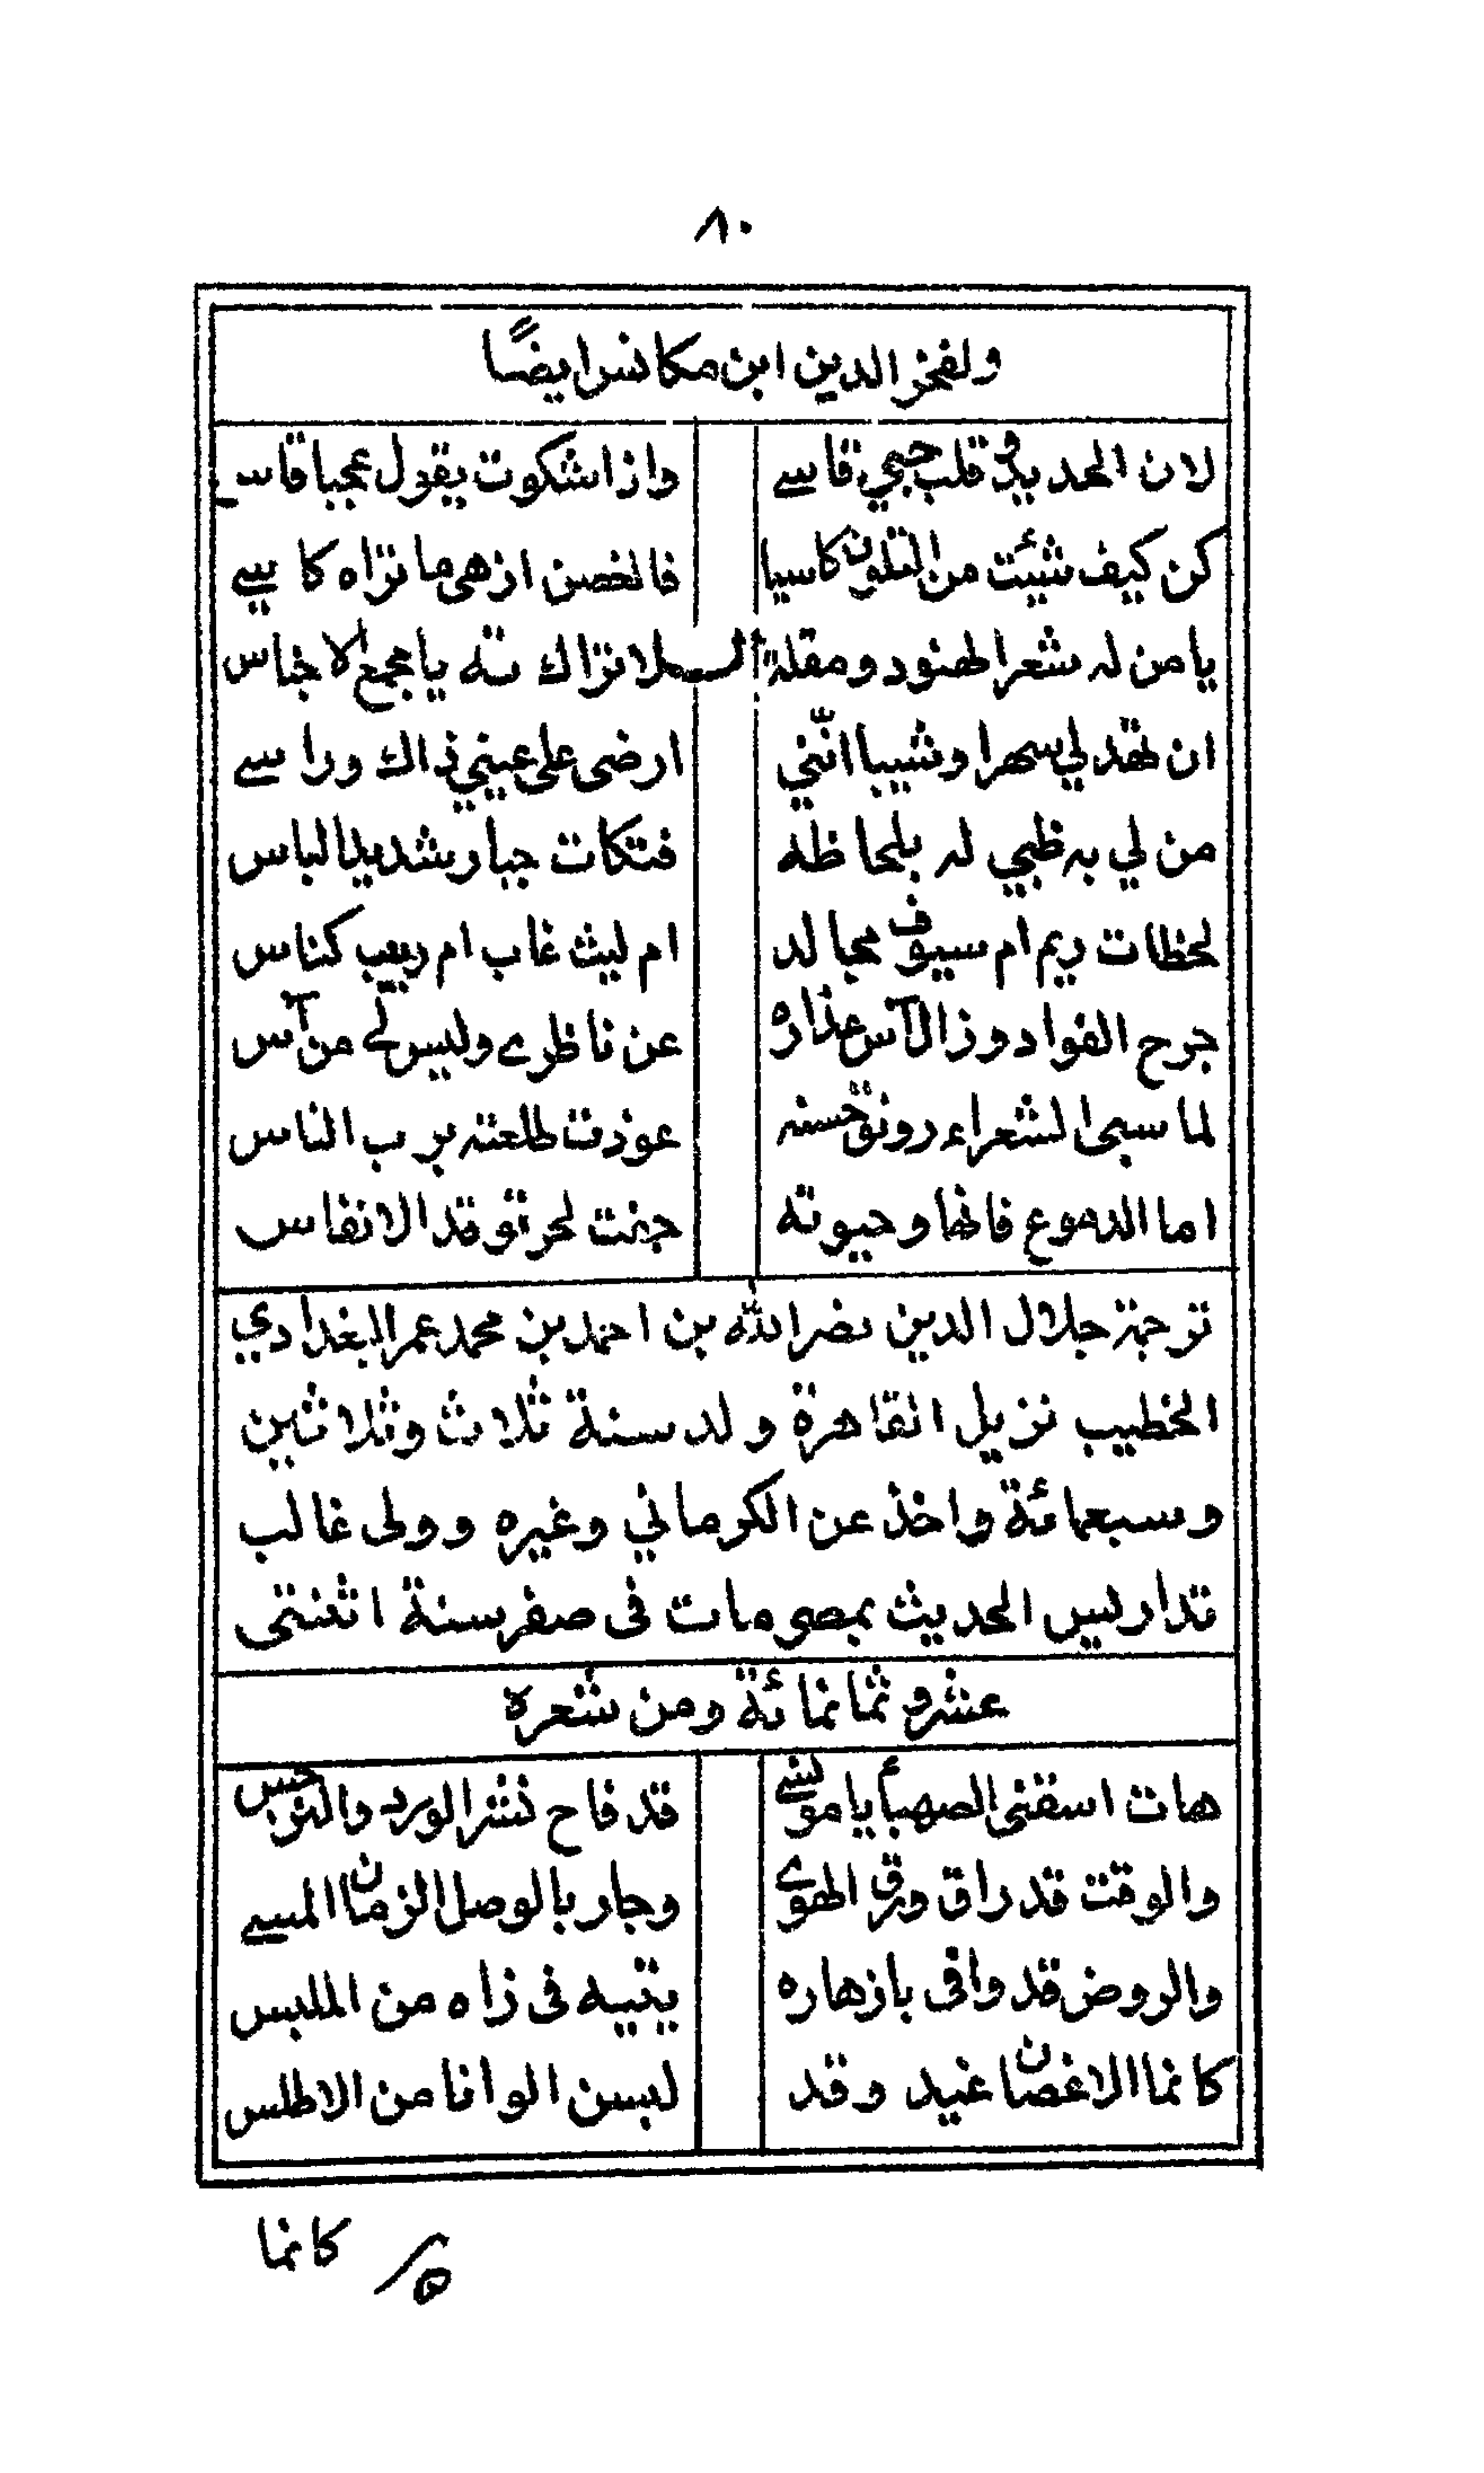 ٨٠
ولفخر الدين ابن مكانس ايضًا
لان الحديد وقلب حبيبي قاسي واذا شكوت يقول عجبا قاس
كن كيف شئت من التلون كاسيا فالغصن ازهى ما تراه كاسي
يا من له شعر الهنود ومقلة الـ ـلا تراك ته يا مجمع الاجناس
ان تهد لي سهرا وشيبا انّني ارضى على عيني ذاك وراسي
من لي به ظبي له بلحاظه فتكات جبار شديد الباس
لحظات ريم ام سيوف مجالد ام ليث غاب ام ربيب كناس
جرح الفواد وزال آس عذاره عن ناظري وليس لي من آس
لما سبى الشعراء رونق حسنه عوذت طلعته برب الناس
اما الدموع فانها وحيوته جنت لحر توقد الانفاس
ترجمة جلال الدين نصر الله بن احمد بن محمد عمر البغدادي
الخطيب نزيل القاهرة ولد سنة ثلاث وثلاثين
وسبعمائة واخذ عن الكرماني وغيره وولى غالب
تداريس الحديث بمصر ومات فى صفر سنة اثنتى
عشر وثمانمائة ومن شعره
هات اسقنى الصهبأ يا مونسي قد فاح نشر الورد والنرجس
والوقت قد راق ورق الهوى وجار بالوصل الزمان المسي
والروض قد وافى بازهاره يتيه فى زاه من الملبس
كانما الاغصان غيد وقد لبسن الوانا من الاطلس
كانما
٥/